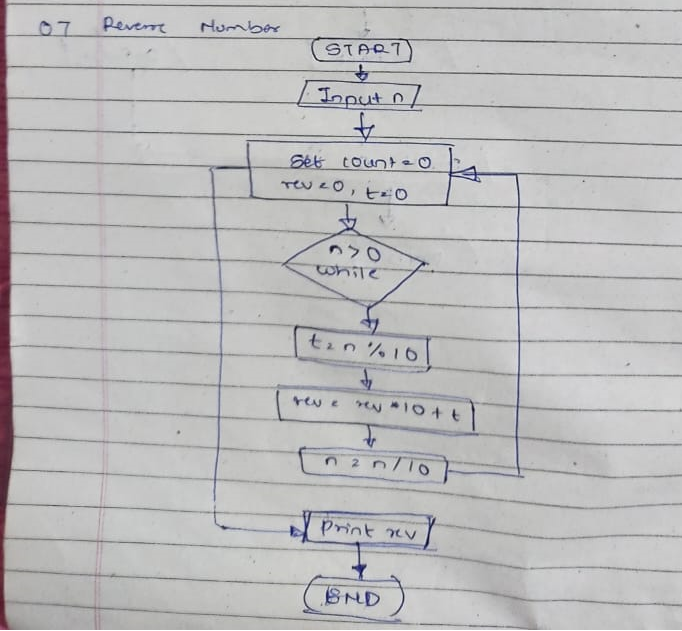 07 Reverse Number
START
Input n
Set count=0
rev=0, t=0
n>0
while
t=n%10
rev = rev*10+t
n=n/10
Print rev
END